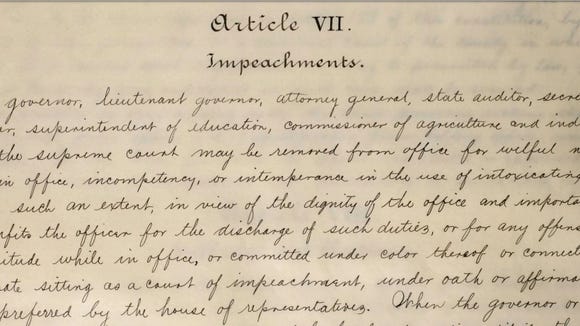 Article VII.
Impeachments.
governor, lieutenant governor, attorney general, state auditor, secre
er, superintendent of education, commissioner of agriculture and ind
the supreme court may be removed from office for wilful n
in office, incompetency, or intemperance in the use of intoxicating
such an extent, in view of the dignity of the office and importa
fits the officer for the discharge of such duties, or for any offens
itude while in office, or committed under color thereof or connecte
ate sitting as a court of impeachment, under oath or affirma
preferred by the house of representatives. When the governor or